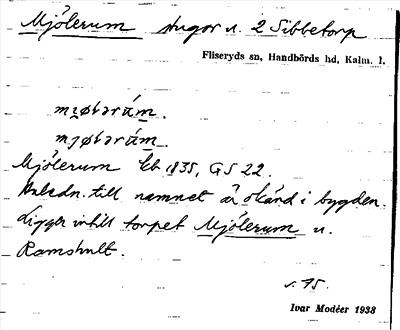 Mjölerum stugor u. 2 Sibbetorp
Fliseryds sn, Handbörds hd, Kalm. l.
mi̯øləru̇m.
mȷøləru̇m.
Mjölerum Eb 1835, GS 22.
Anledn. till namnet är okänd i bygden.
Ligger intill torpet Mjölerum u.
Ramshult.
s. 75.
Ivar Modéer 1938